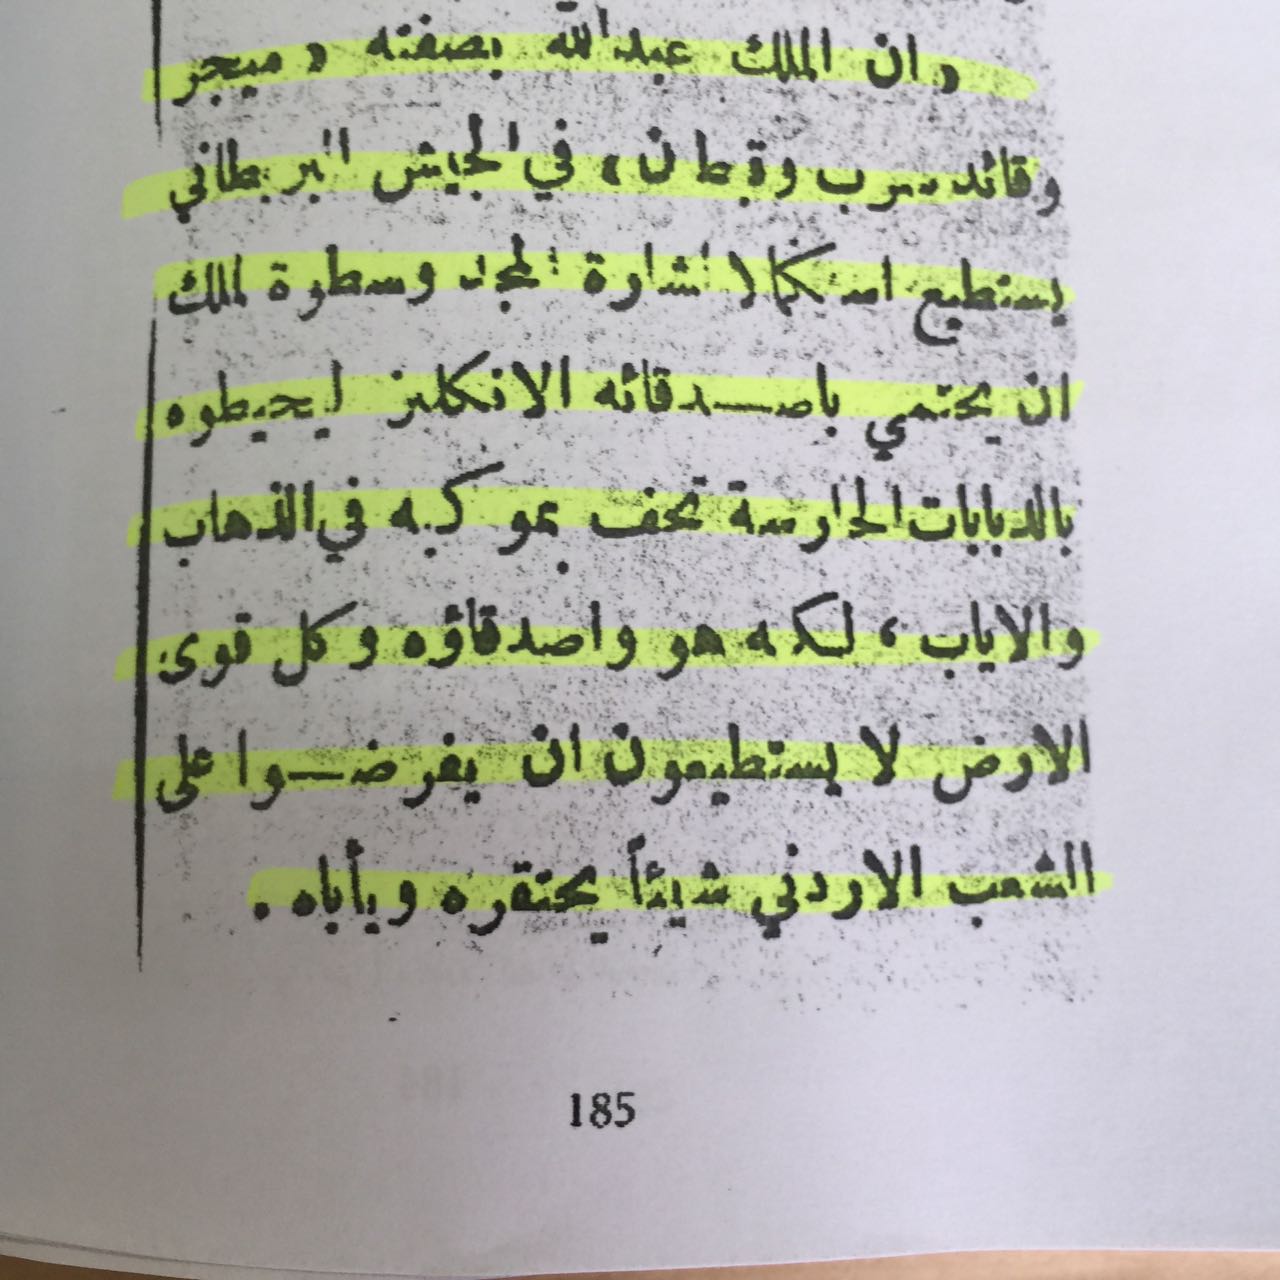 « ان الملك عبدالله بصفته « ميجر
وقائد سرب وقبطان » في الجيش البريطاني
يستطيع استكمالا لشارة المجد وسطوة الملك
ان يحتمي باصـدقائه الانكليز ليحيطوه
بالدبابات الحارسة تحف بموكبه في الذهاب
والاياب ، لكنه هو واصدقاؤه وكل قوى
الارض لا يستطيعون ان يفرضـوا على
الشعب الاردني شيئاً يحتقره ويأباه .
185